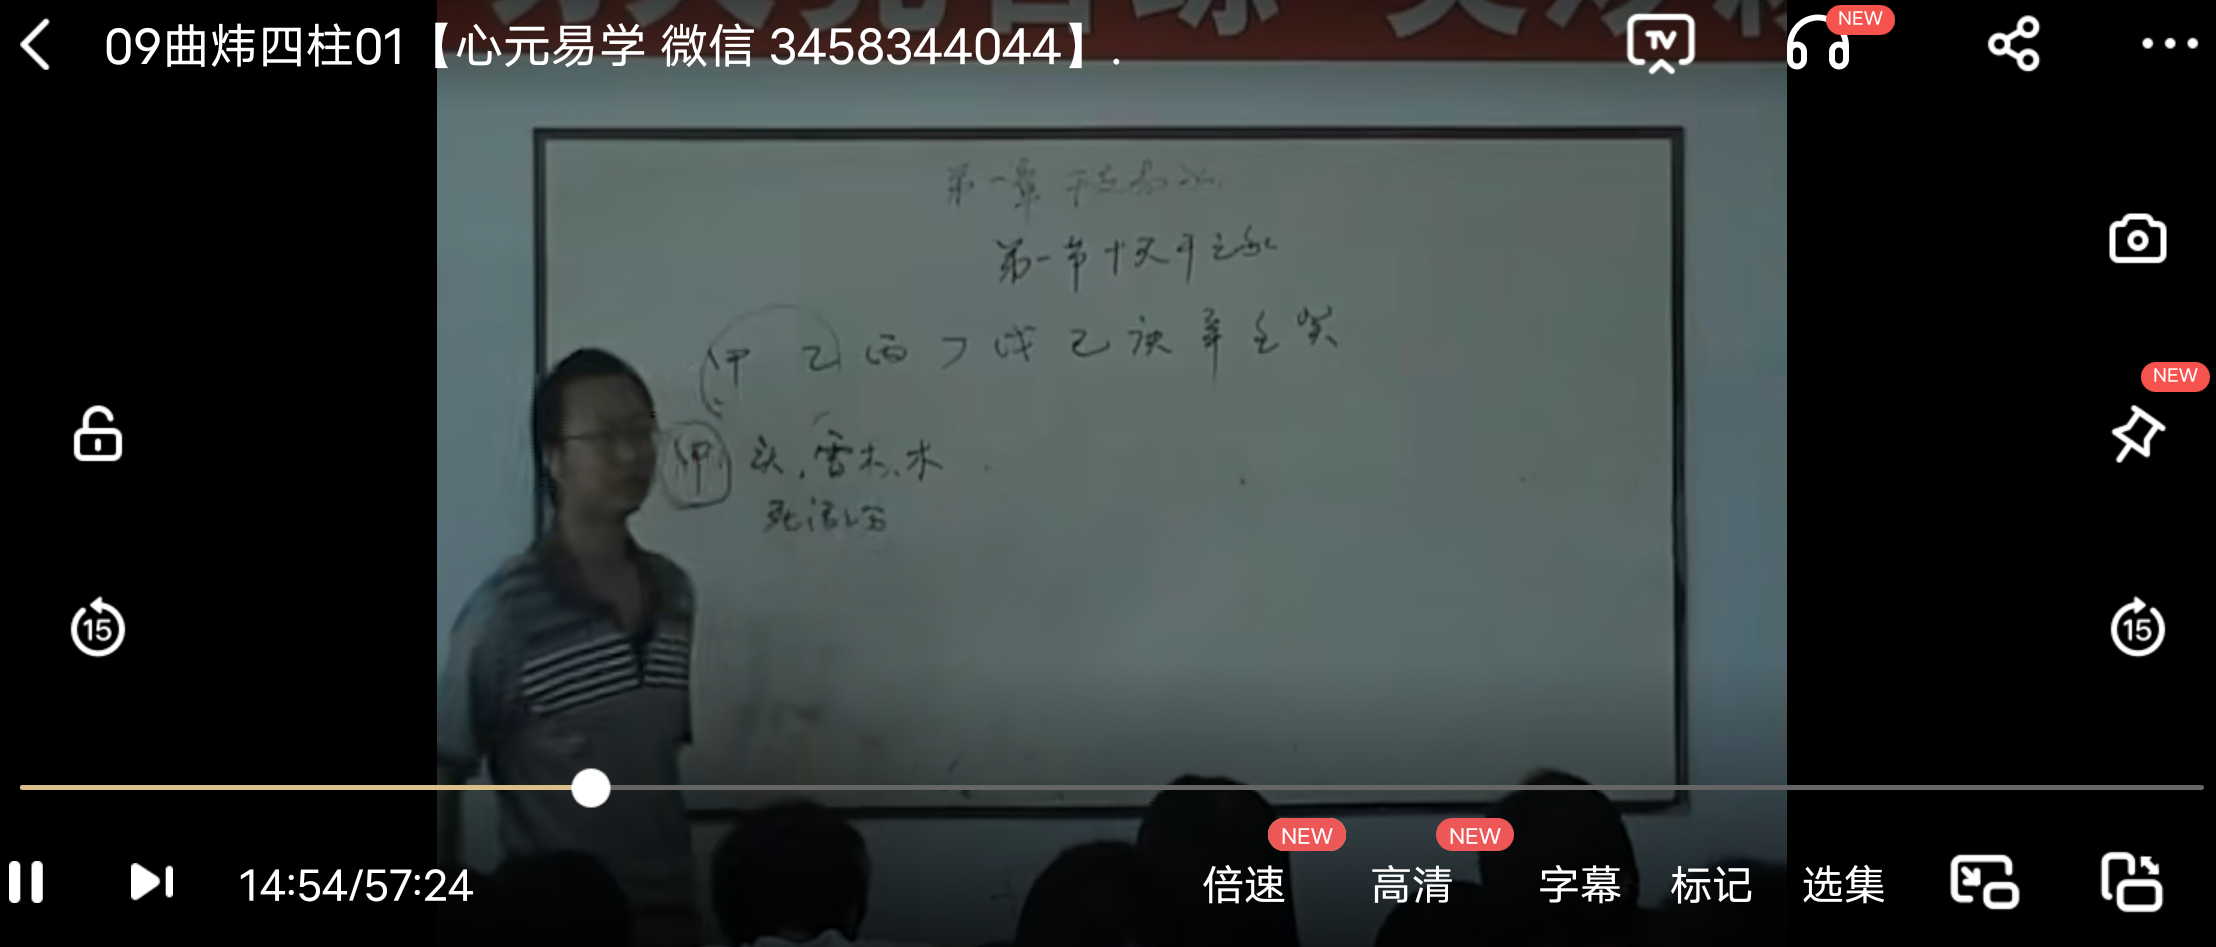 09曲炜四柱01【心元易学 微信 3458344044】.
TV
NEW
第一章 干支易
第一节十天干之象
甲 乙 丙 丁 戊 己 庚 辛 壬 癸
NEW
甲 头、雷木、木
15
15
14:54/57:24
NEW
NEW
倍速 高清 字幕 标记 选集